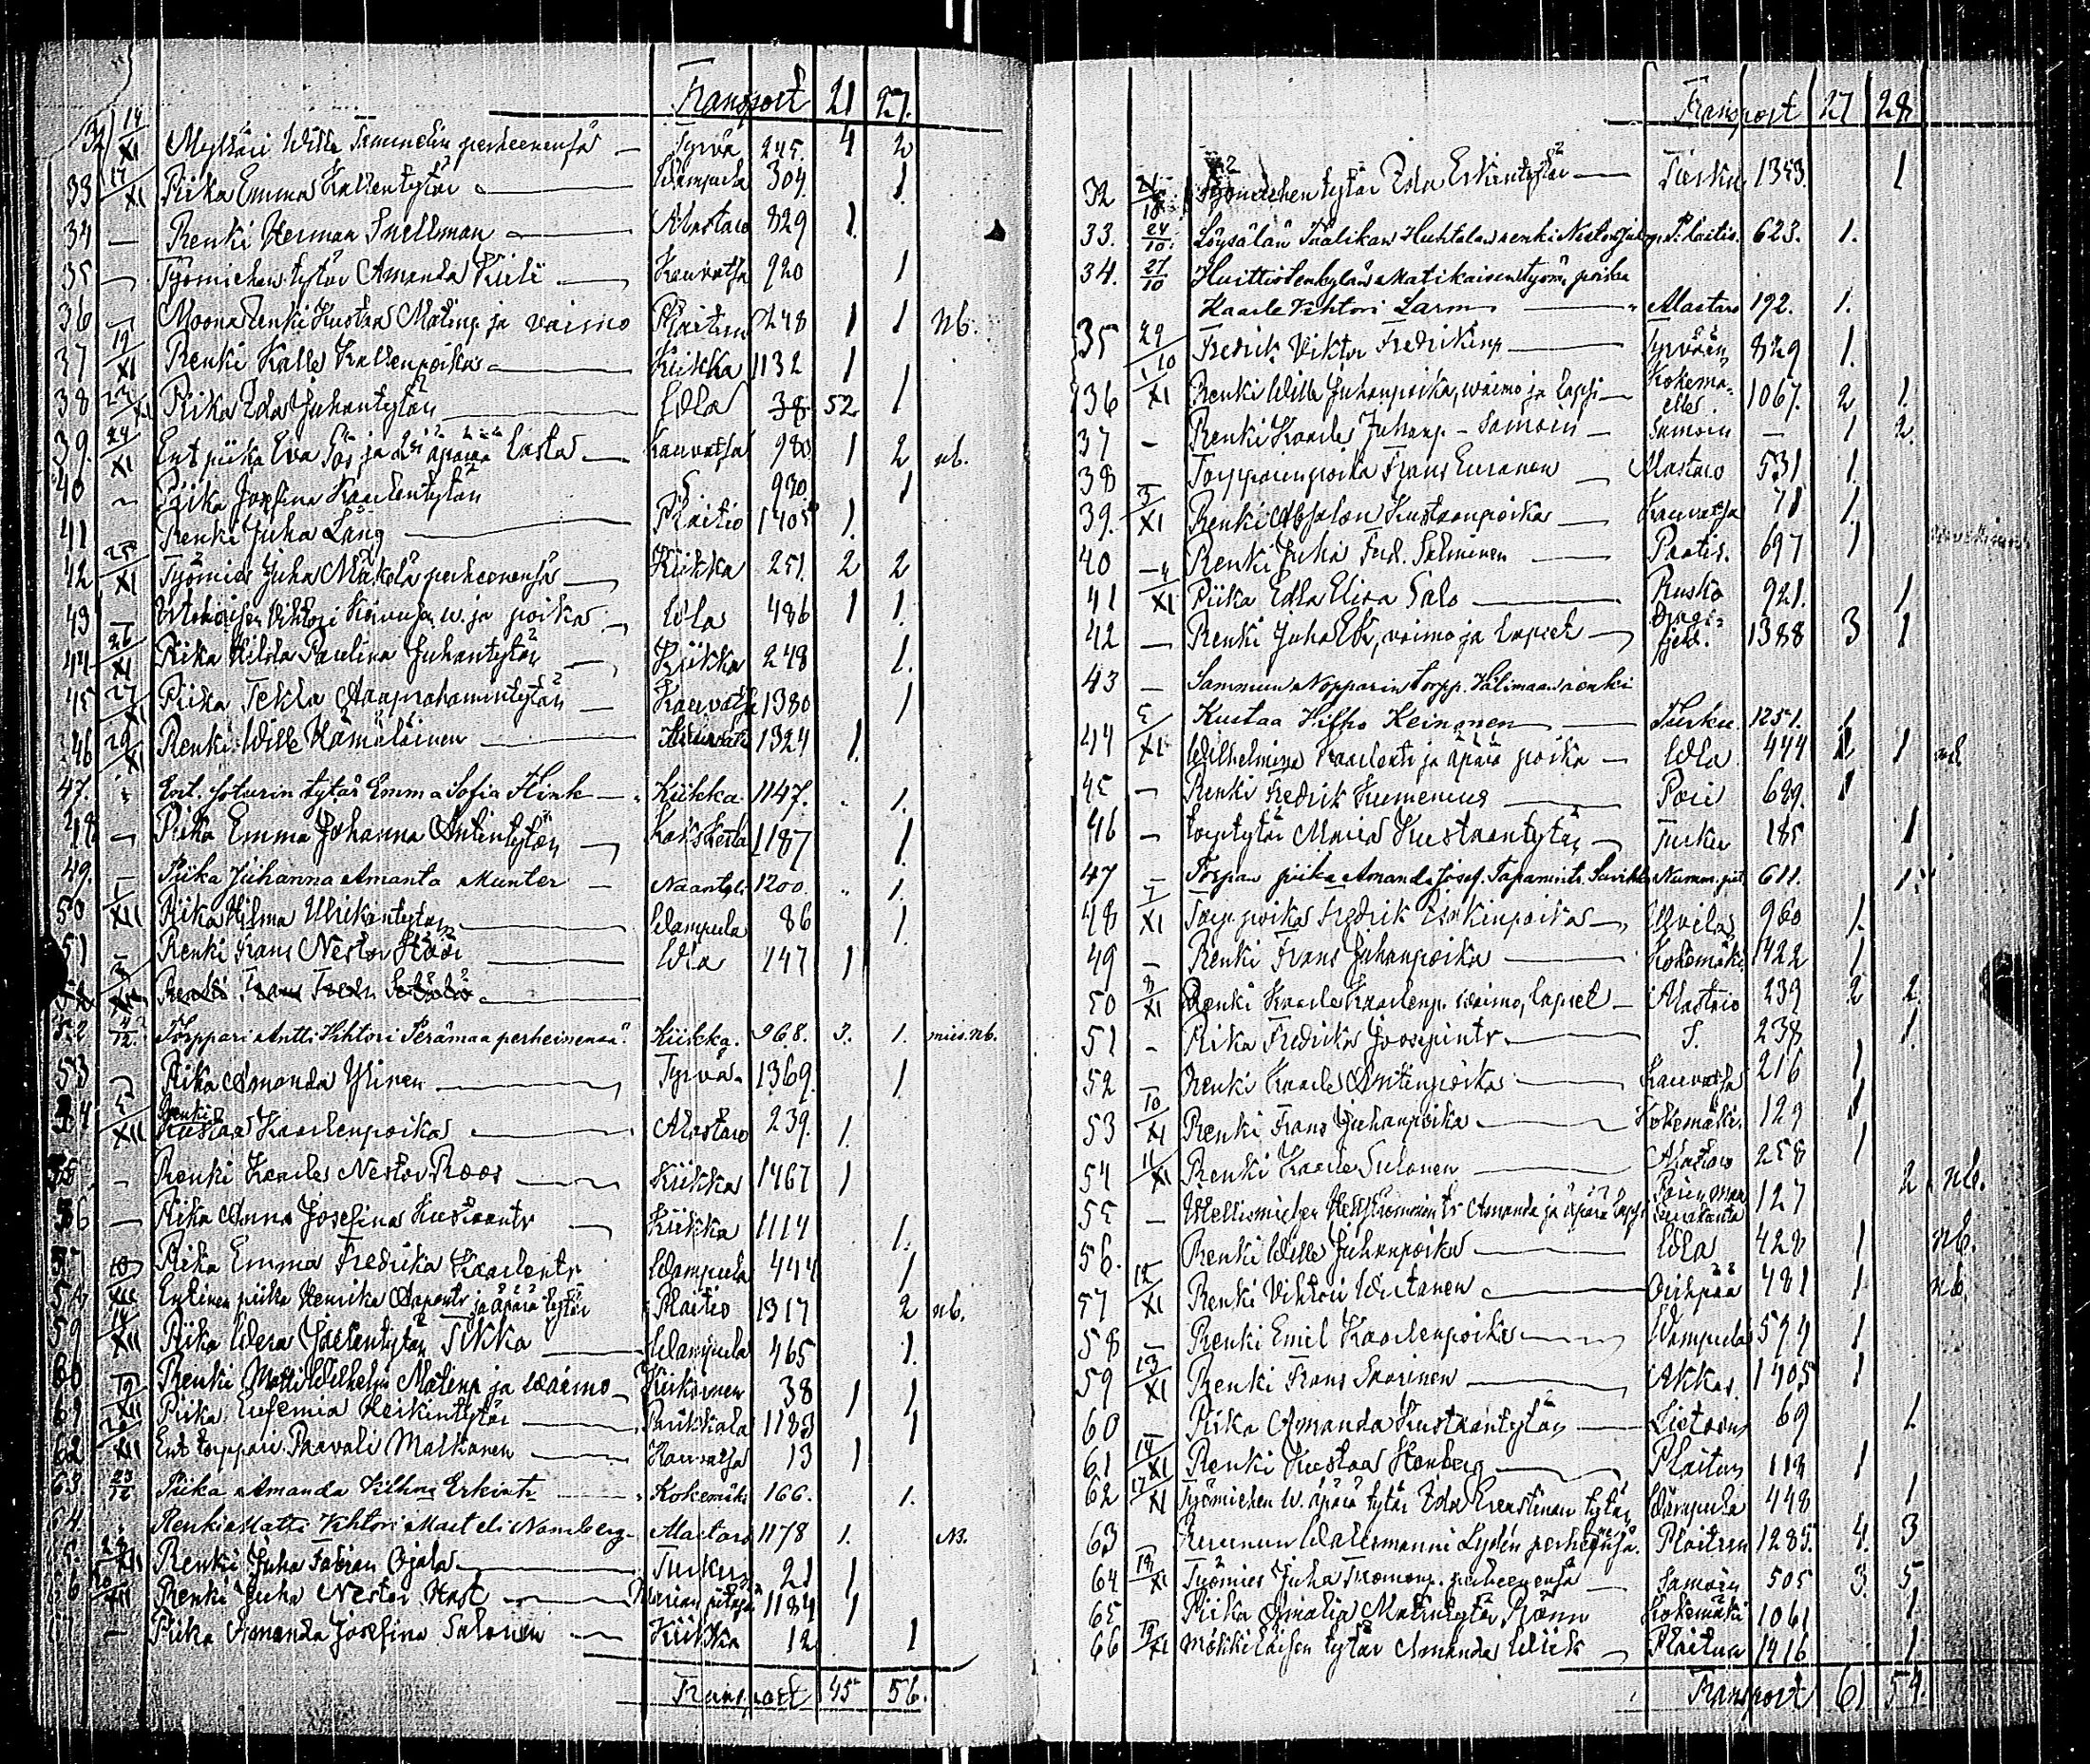 Transport 21 27.
32 14/XI Mylläri Wille Tammelin perheenensä — Tyrvä 245. 4 2
33 17/XI Piika Emma Kallentytär — Wampula 304. 1.
34 — Renki Herman Snellman — Alastaro 829 1.
35 — Työmiehen tytär Amanda — Kauvatsa 920 1
36 — Renki Kustaa Matinp. ja vaimo Plaitun 248 1 1 nb.
37 19/XI Renki Kalle Kallenpoika — Kiikka 1132 1
38 Piika Ida Juhantytär — Wla 38 52 1
39. 24/XI Ent piika Eva ja äpärä lasta — Kauvatsa 980. 1 2 nb.
40 Piika Josefina Kaarlentytär 930. 1
41 Renki Juha Lång — Plaitio 1405 1.
42 25/XI Työmies Juha Mäkelä perheenensä — Kiikka 251. 2 2
43 — Vihtori w. ja poika — Wla 486 1 1.
44 26/XI Piika Hilda Paulina Juhantytär — Kiikka 248 1.
45 27/XI Piika Tekla Aaprahamintytär — Kauvatsa 1380 1
46 29/XI Renki Wille Hämäläinen — 1324 1.
47. Ent. tytär Emma Sofia Flink — Kiikka. 1147. 1.
48 — Piika Emma Johanna Antintytär — Kakskerta 1187 1.
49. — Piika Juhanna Amanta Munter — Naantali 1200. 1.
50 1/XII Piika Hilma Ulrikantytar — Wampula 86 1.
51 — Renki Frans Nestor — Wla 147 1
Renki Frans Fredr.
52 4/12. Torppari Antti Vihtori Perämaa perheinensä. Kiikka. 968. 3. 1. mies. nb.
53 — Piika Amanda Ylinen — Tyrvä. 1369. 1
54 5/XII Renki Kustaa Kaarlenpoika — Alastaro 239. 1.
55 — Renki Kaarle Nestor Roos — Kiikka 1467 1
56 — Piika Anna Josefina Kustaantr — Kiikka 1114 1.
57 Piika Emma Fredrika Kaarlentr Wampula 444 1
58 10/XII Entinen piika Henrika Aapontr ja äpärä tytär Plaitio 1317 2 nb.
59 14/XII Piika Wera Kaarlentytär Tikka — Wampula 465 1.
60 Renki Matti Wilhelm Matinp ja waimo — Kiikoinen 38 1 1
61 19/XII Piika Eufemia Heikintytär — Parikkala 1183 1
62 20/XII Ent torppari Paavali Malkanen — Kauvatsa 13 1
63 23/12 Piika Amanda Vilhna Erkintr — Kokemäki 166. 1.
64. Renki Matti Vihtori Marteli Namberg — Alastaro 1178 1. NB.
65. 28/XII Renki Juha Fabian Ojala — Turkus 21 1
66 30/XII Renki Juha Nestor Hast — Marian pitäjä 1184 1
— Piika Amanda Josefina Salonen — Kiikka 12 1
Transport 45 56.
Transport 27 28
32 Työmiehen tytär Eda Erkintytär — Turku 1353. 1
33. 24/10. Löysälän Täälikan Huhtalan renki Nestor P.laitio. 623. 1.
34. 27/10 Huittistenkylän Matikaisen työm. poika
Kaarle Vihtori Larm — Alastaro 192. 1.
35 29/10 Fredrik Viktor Fredrikinp — Tyrvään 829 1.
36 1/XI Renki Wille Juhanpoika, waimo ja lapsi — Kokemäellä. 1067. 2 1.
37 — Renki Kaarle Juhanp — Samoin — Samoin — 1 2.
38 — Torpparinpoika Frans Euranen — Alastaro 531 1.
39. 3/XI Renki Absalon Kustaanpoika — Kauvatsa 71 1
40 — Renki Juha Fred. Salminen — Paatis. 697 1
41 4/XI Piika Edla Elisa Salo — Rusko 921. 1
42 — Renki Juha Ek, vaimo ja lapset — Dragsfjerd. 1388 3 1
43 — Sammun Nopparin torpp. Välimaan renki
Kustaa Hifho Heinonen — Turku. 1251. 1
44 5/XI Wilhelmina Kaarlentr ja äpärä poika — Wla 444 1 1 nb.
45 — Renki Fredrik Kumenius — Pori 689. 1
46 — torp tytär Maria Kustaantytär — Turku 185 1
47 — Torpan piika Amanda Josef. Tapanintr. Numm. pit. 611. 1.
48 7/XI Torp. poika Fredrik Isakinpoika — Ulvila 960 1.
49 — Renki Frans Juhanpoika — Kokemäki 1422 1
50 8/XI Renki Kaarle Kaarlenp. waimo, lapset — Alastaro 239 2 2
51 - Piika Fredrika Joosepintr. — S. 238 1.
52 — Renki Kaarle Antinpoika — Kauvatsa 216 1
53 10/XI Renki Frans Juhanpoika — Kokemäki 129 1
54 11/XI Renki Kaarle Sulonen — Alastaro 258 1
55 — Amanda ja äpärä lapsi Porin maa seurakunta 127 2 nb.
56. — Renki Wille Juhanpoika — Wla 428 1 nb.
57 12/XI Renki Vihtori Wirtanen — Oripää 481 1 nb.
58 — Renki Emil Kaarlenpoika — Wampula 594 1
59 13/XI Renki Frans Saarinen — Akkas. 1405 1
60 — Piika Amanda Kustaantytär — Lietoon 69 1
61 14/XI Renki Kustaa Stenberg — Plaitun 118 1
62 17/XI Työmiehen w. äpärä tytär Ida Ernestiinan tytär Wampula 448 1
63 — Wallesmanni Lydén perheensä. Plaitun 1285. 4. 3
64 18/XI Työmies Juha Tuomonp. perheenensä — Samoin 505 3. 5
65 Piika Amalia Matintytär Rönn Kokemäki 1061 1
66 19/XI Mökkiläisen tytär Amanda Wiik — Plaitun 1416 1
Transport 61 54.